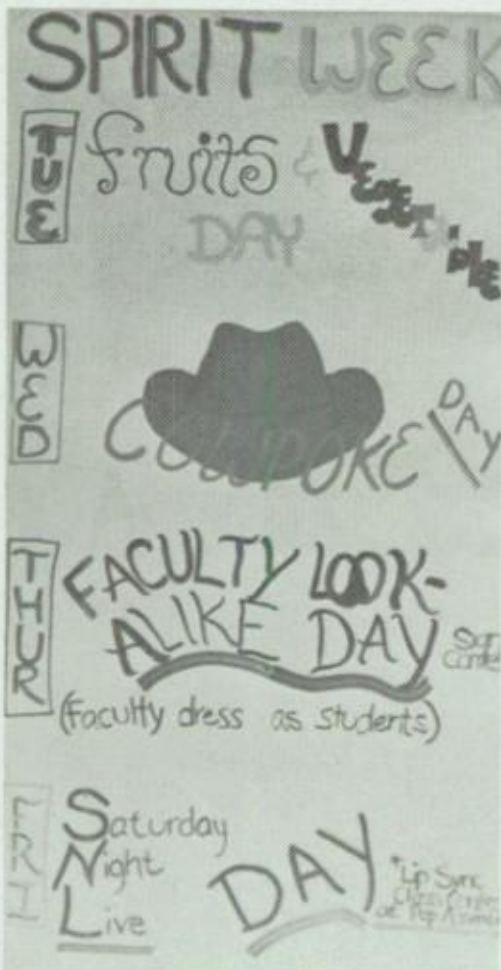 SPIRIT WEEK
TUE
fruits & VEGETABLE
DAY
WED
COWPOKE DAY
THUR
FACULTY LOOK-
ALIKE DAY
(Faculty dress as students)
FRI
Saturday
Night
Live
DAY
*Lip Sync